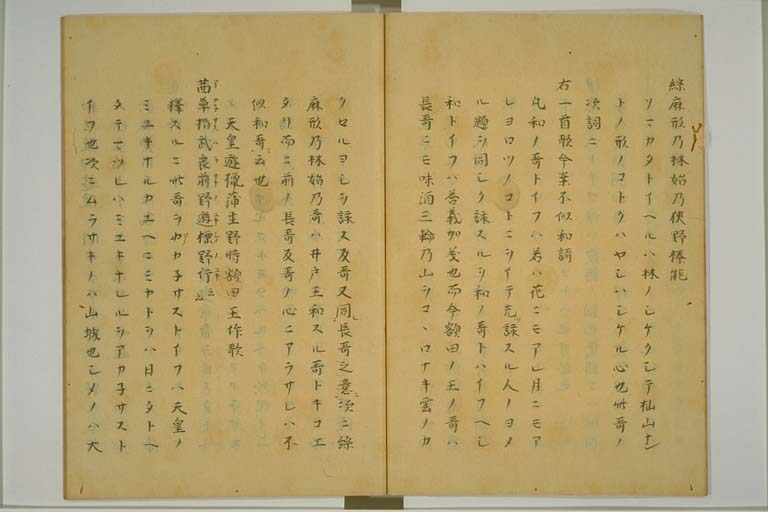 綜麻形乃林始乃狹野榛能
ソマカタトイヘルハ林ノシケクシテ杣山ナト
トノ形ノコトクハヤシハシケル心也此哥ノ
次詞ニ
右一首歌今案不似和謌
凡和ノ哥トイフハ若ハ花ニモアレ月ニモア
レヨロツノコトニツイテ先詠スル人ノヨメ
ル題ヲ同シク詠スルヲ和ノ哥トハイフヘシ
和トイフハ答義加義也而今額田ノ王ノ哥ハ
長哥ニモ味酒三輪乃山ヲコヽロナキ雲ノカ
クセルヨシヲ詠ス反哥又同長哥之意次ニ綜
麻形乃林始乃哥ハ井戸王和スル哥トキコエ
タリ而ニ前ノ長哥反哥ノ心ニアラサレハ不
似和哥云也
天皇遊獦蒲生野時額田王作歌
茜草指武良前野遊標野行
釋スルニ此哥ヲアカ子サストイフハ天皇ノ
ミユキナルカユヘニミカトヲハ日ニタトヘ
タテマツレハミユキナレルヲアカ子サスト
イフ也次ニムラサキノハ山城也シメノハ大